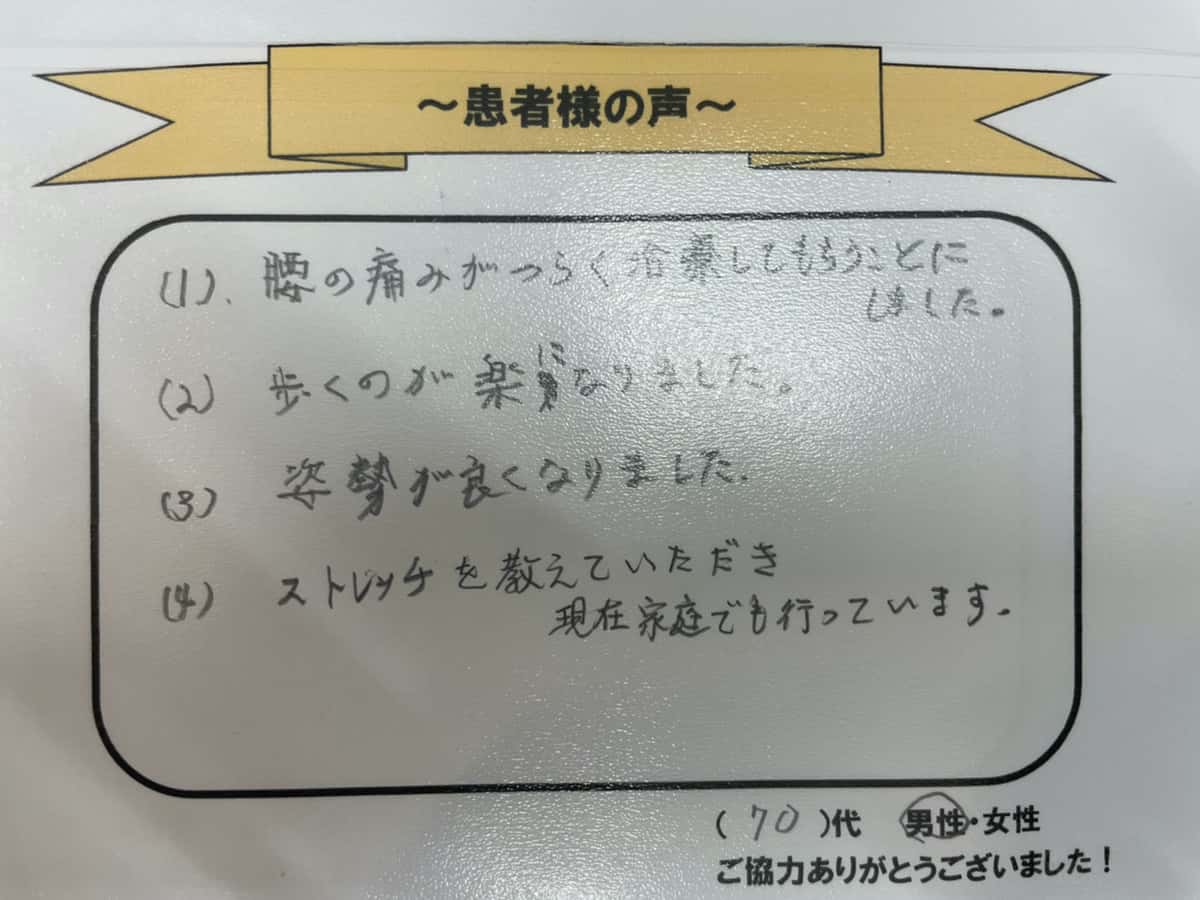 ～患者様の声～
(1). 腰の痛みがつらく治療してもらうことに
しました。
(2) 歩くのが楽になりました。
(3) 姿勢が良くなりました.
(4) ストレッチを教えていただき
現在家庭でも行っています.
( 70 )代 男性・女性
ご協力ありがとうございました！